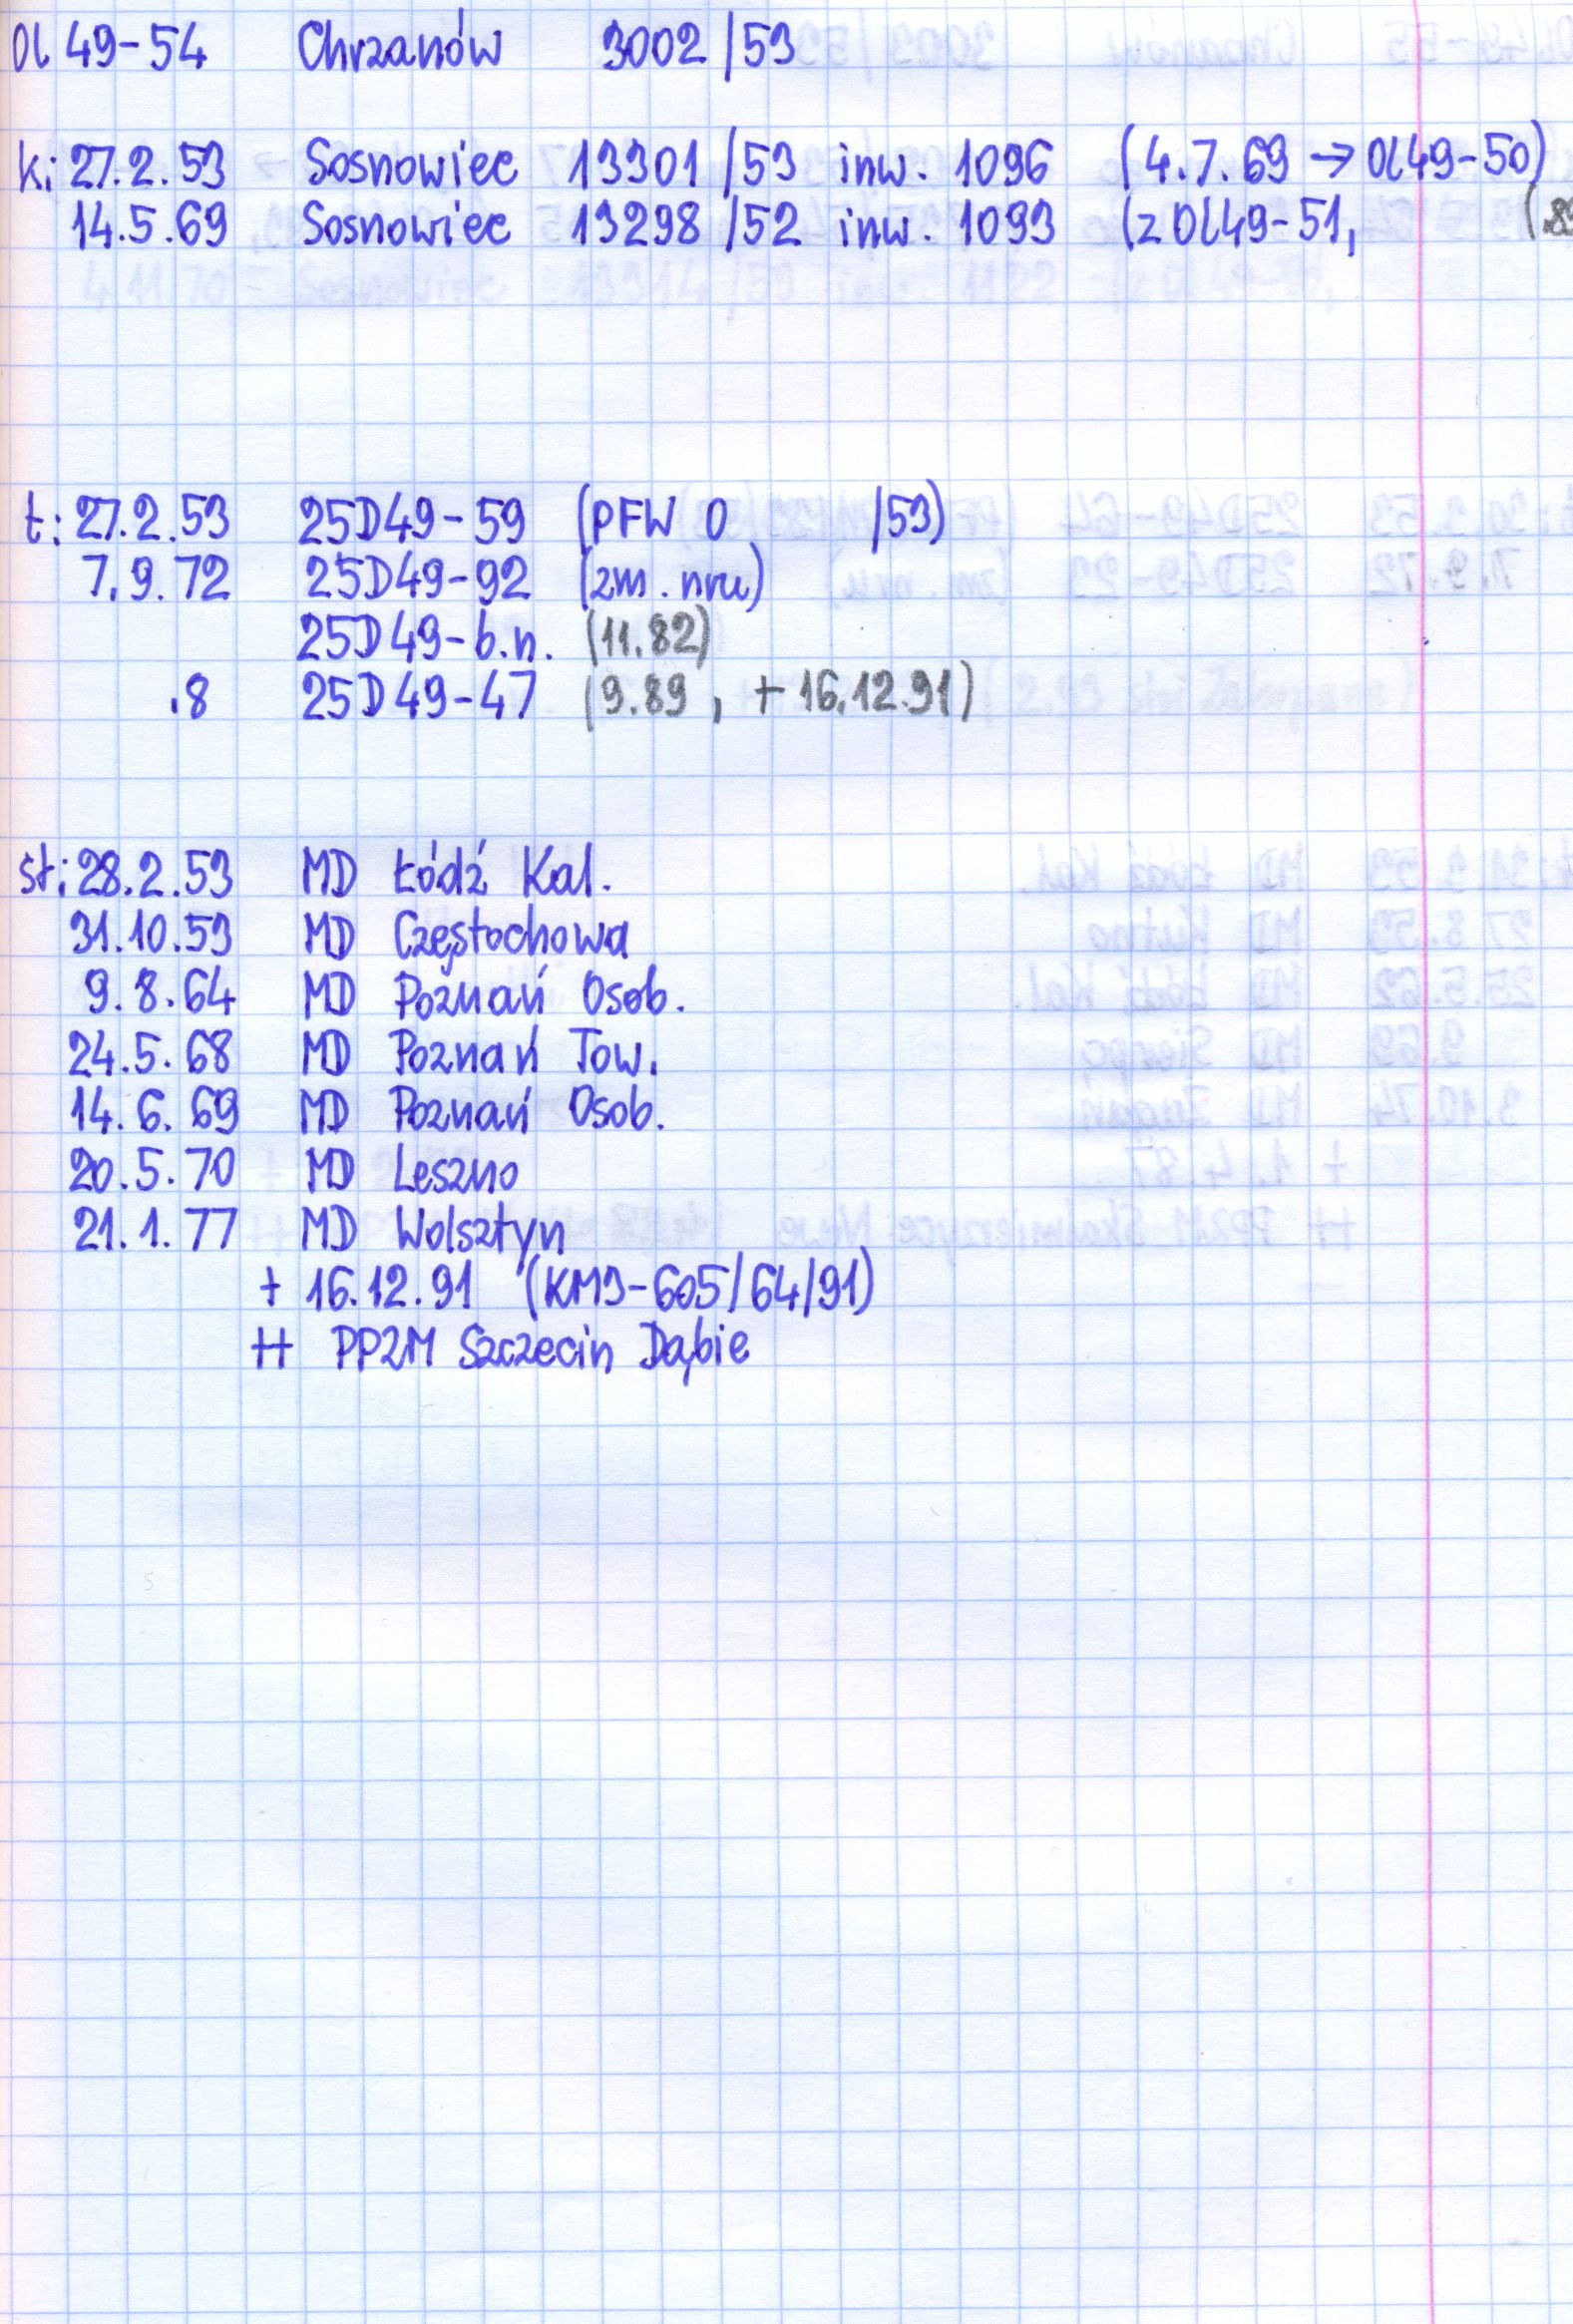 Ol 49-54 Chrzanów 3002/53
k: 27.2.53 Sosnowiec 13301/53 inw. 1096 (4.7.69 → Ol49-50)
14.5.69 Sosnowiec 13298/52 inw. 1093 (z Ol49-51, (.89
t: 27.2.53 25D49-59 (PFW O /53)
7.9.72 25D49-92 (zm. nru)
25D49-b.n. (11.82)
.8 25D49-47 (9.89, + 16.12.91)
st: 28.2.53 MD Łódź Kal.
31.10.53 MD Częstochowa
9.8.64 MD Poznań Osob.
24.5.68 MD Poznań Tow.
14.6.69 MD Poznań Osob.
20.5.70 MD Leszno
21.1.77 MD Wolsztyn
+ 16.12.91 (KM3-605/64/91)
++ PPZM Szczecin Dąbie